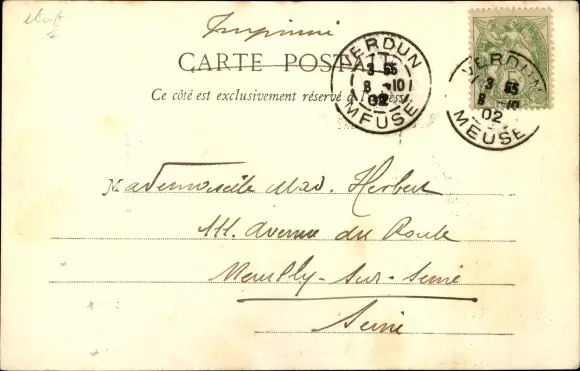 Imprimé
CARTE POSTALE
Ce côté est exclusivement réservé à l'adresse
VERDUN
3 55
8 -10
02
MEUSE
VERDUN
3 55
8 10
02
MEUSE
5
Mademoiselle Mad. Herbert
111. Avenue du Roule
Neuilly-sur-Seine
Seine